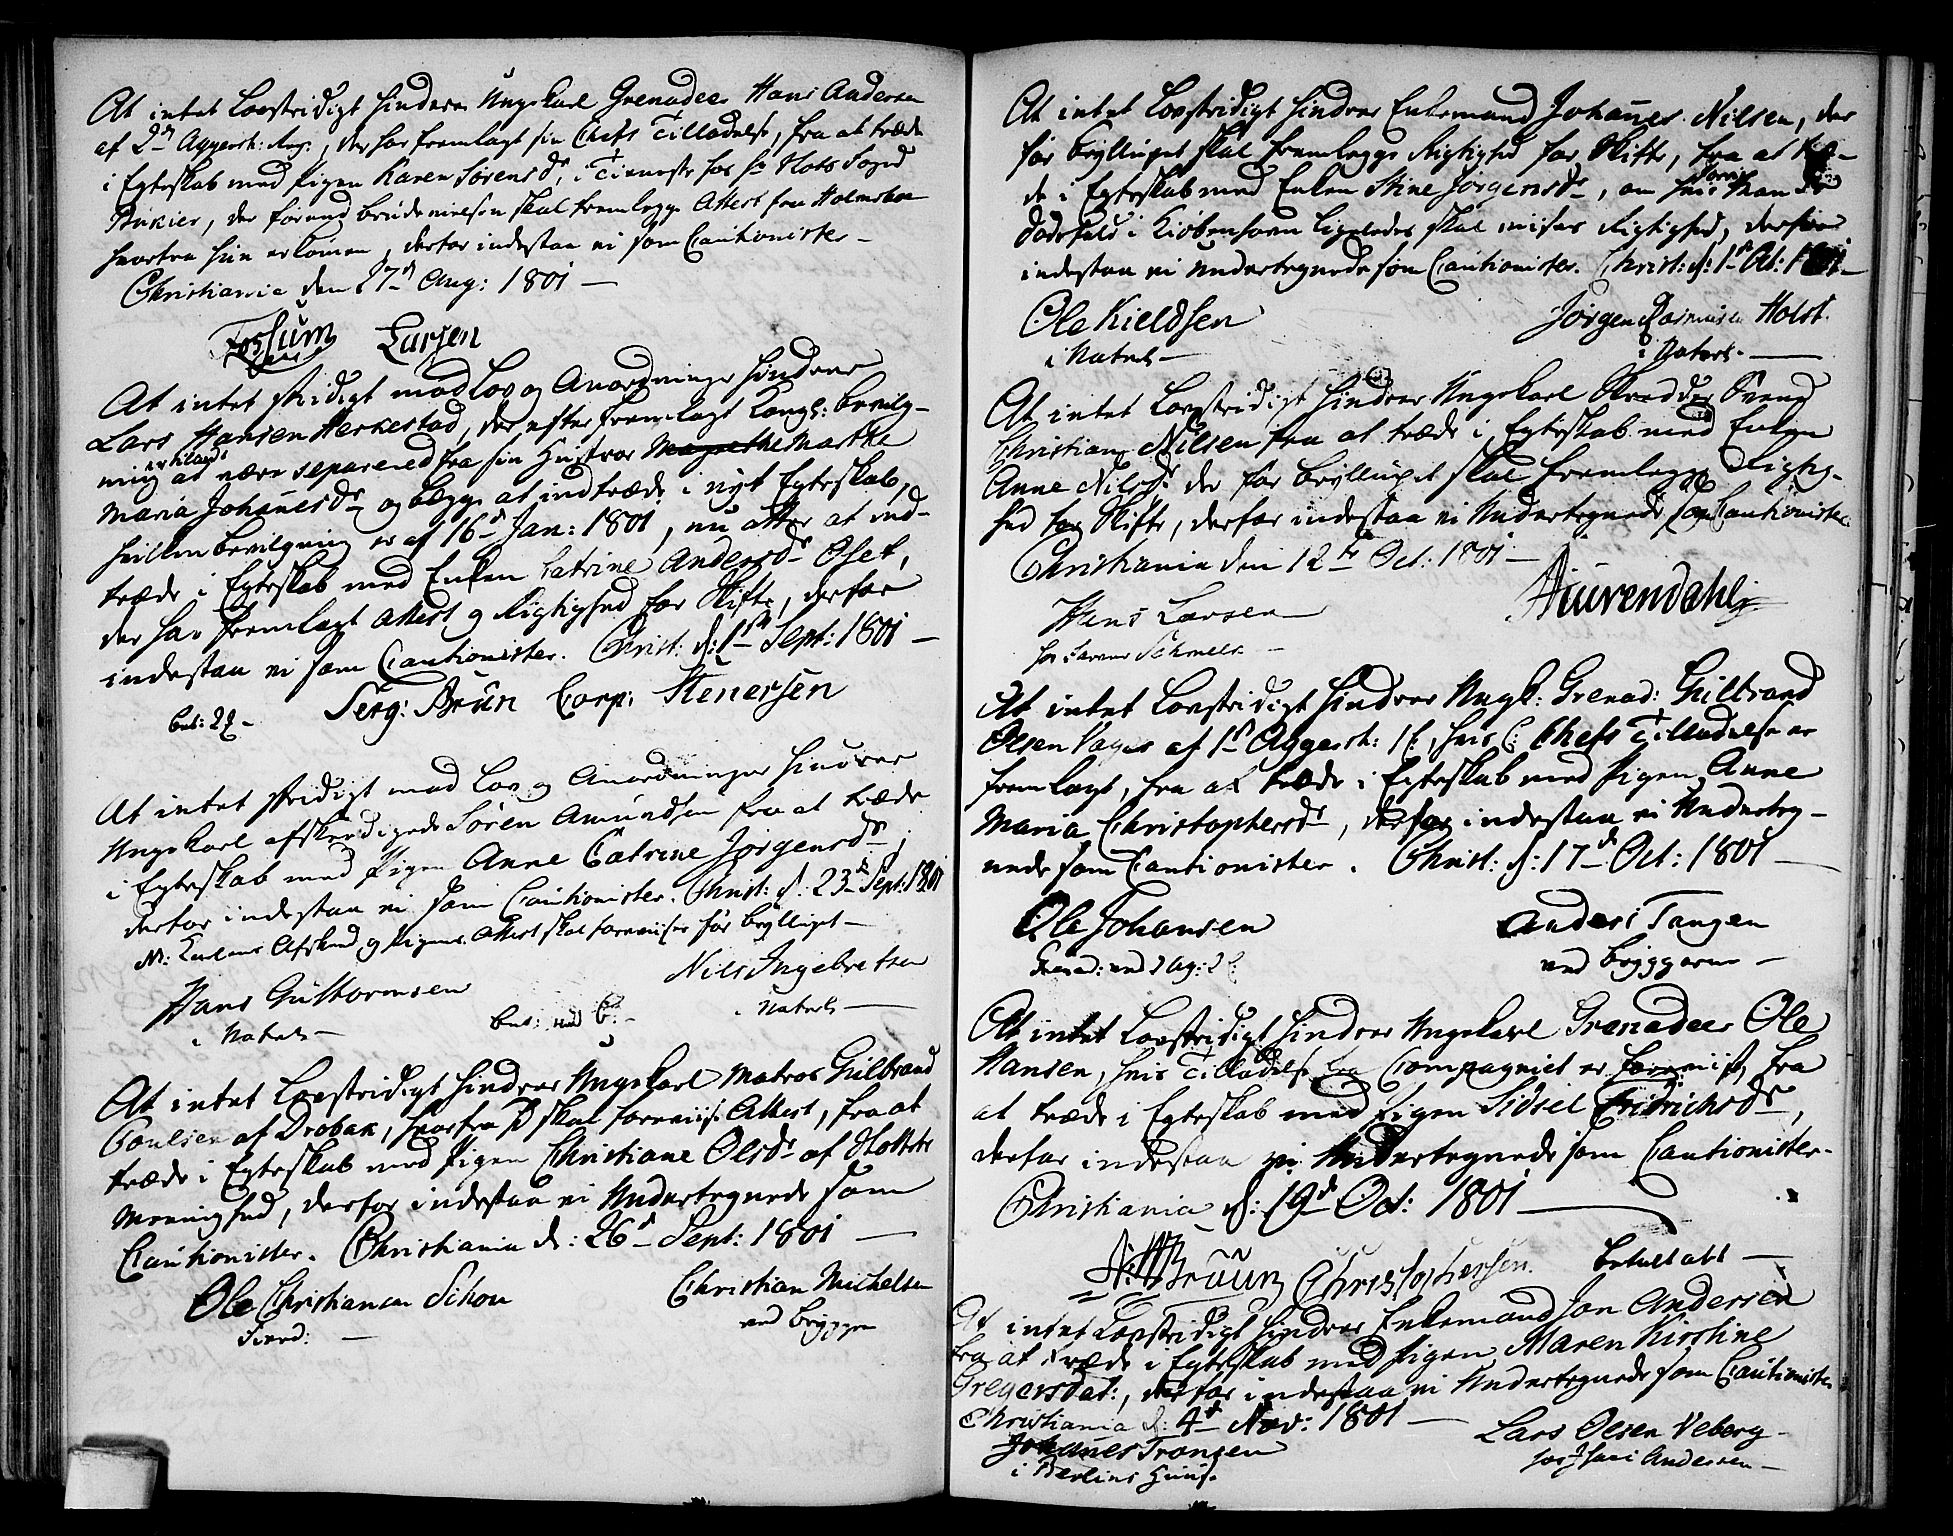 At intet Lovstridigt hindrer Ungekarl Grenadeer Hans Andersen
af 2den Aggersh: Reg:, der har fremlagt sin Chefs Tilladelse, fra at træde
i Egteskab med Pigen Karen Sørensdr, i Tieneste hos Hr Hols Sogd
der forend brudevielsen skal fremlegge Attest fra Holmsboe
hvorfra hun er kommen, derfor indestaa vi som Cautionister –
Christiania den 27de Aug: 1801 –
Fossum Larsen
At intet stridigt mod Lov og Anordninger hindrer
Lars Hansen Herkestad, der efter fremlagt Kongl: bevilg-
ning at være separered fra sin Hustroe Marthe
Maria Johanesdr og begge at indtræde i nyt Egteskab,
hvilken bevilgning er af 16de Jan: 1801, nu atter at ind-
træde i Egteskab med Enken Catrine Andersdr Oset,
der har fremlagt Attest og Rigtighed for Skifte, derfor
indestaa vi som Cautionister. Christ: d: 1ste Sept: 1801 –
Serg: Brun Corp: Stenersen
bet: 2
At intet stridigt mod Lov og Anordninger hindrer
Ungekarl afskendigede Søren Amundsen fra at træde
i Egteskab med Pigen Anne Catrine Jørgensdr,
derfor indestaa vi som Cautionister. Christ: d: 23de Sept: 1801
NB: Karlens Afskeed og Pigens Attest skal foreviises før brylluppet –
Hans Guttormsen Nils Ingebretsen
i Vaterl – Vaterl –
bet: ved
At intet Lovstridigt hindrer Ungekarl Matros Gulbrand
Poulsen af Drøbak, hvorfra skal foreviise Attest, fra at
træde i Egteskab med Pigen Christiane Olsdr af
Meenighed, derfor indestaa vi Undertegnede som
Cautionister. Christiania d: 26de Sept: 1801 –
Ole Christiansen Schou Christian Michelsen
ved Bryggen
At intet Lovstridigt hindrer Enkemand Johannes Nilsen, der
før brylluppet skal fremlegge Rigtighed for Skifte, fra at træ-
de i Egteskab med Enken Stine Jørgensdr, om hvis Mands
dødsfald i Kiøbenhavn ligeledes skal viises Rigtighed, derfor
indestaa vi Undertegnede som Cautionister. Christ: d: 1ste Oct: 1801 –
Ole Kieldsen Jørgen Rasmusen Holst
i Vaterl – i Vaterl –
At intet Lovstridigt hindrer Ungekarl Skredder Svend
Christian Nilsen fra at træde i Egteskab med Enken
Anne Nilsdr der før brylluppet skal fremlegge Rigtig-
hed for Skifte, derfor indestaa vi Undertegnede som Cautionister
Christiania den 12te Oct: 1801 –
Hans Larsen
hos
At intet Lovstridigt hindrer Ungk: Grenad: Gulbrand
Olsen af 1ste Aggersh: hvis Chefs Tilladelse er
fremlagt, fra at træde i Egteskab med Pigen Anne
Maria Christophersdr, derfor indestaa vi Underteg-
nede som Cautionister. Christ: d: 17de Oct: 1801 –
Ole Johansen Anders Tangen
Grenad: ved ved bryggerne –
At intet Lovstridigt hindrer Ungekarl Grenadeer Ole
Hansen, hvis Tilladelse fra Compagniet er foreviist, fra
at træde i Egteskab med Pigen Sidsel Fridrichsdr,
derfor indestaa vi Undertegnede som Cautionister.
Christiania d: 19de Oct: 1801 –
Bruun Christophersen. betalt
At intet Lovstridigt hindrer Enkemand Jon Andersen
fra at træde i Egteskab med Pigen Maren Kirstine
Gregersdat:, derfor indestaa vi Undertegnede som Cautionister
Christiania d: 4de Nov: 1801 –
Johannes Tronsen Lars Olsen Veberg
i Berlins Huus hos Andersen –